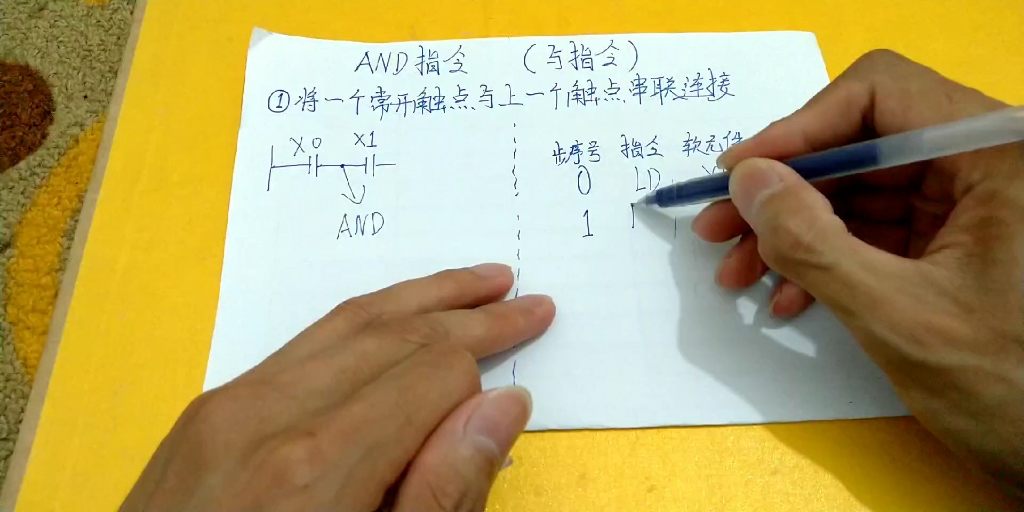 AND指令 (与指令)
①将一个常开触点与上一个触点串联连接
X0 X1
AND
步序号 指令 软元件
0 LD
1